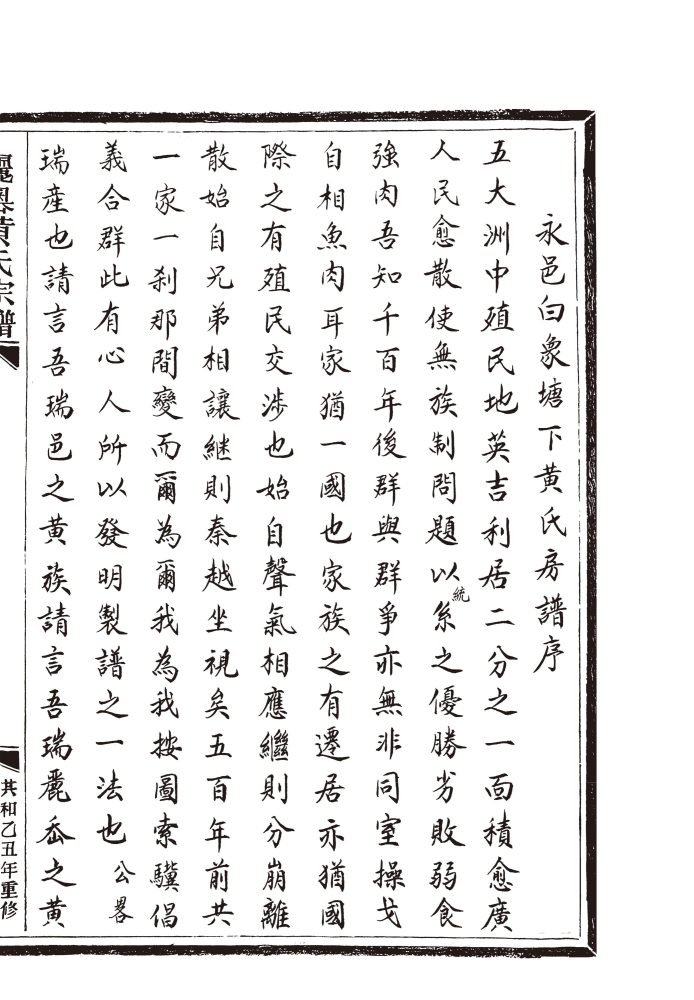 永邑白象塘下黄氏房譜序
五大洲中殖民地英吉利居二分之一面積愈廣
人民愈散使無族制問題以統系之優勝劣敗弱食
強肉吾知千百年後群與群爭亦無非同室操戈
自相魚肉耳家猶一國也家族之有遷居亦猶國
際之有殖民交涉也始自聲氣相應繼則分崩離
散始自兄弟相讓継則秦越坐視矣五百年前共
一家一刹那間變而爾為爾我為我按圖索驥倡
義合群此有心人所以發明製譜之一法也公畧
瑞産也請言吾瑞邑之黄族請言吾瑞麗岙之黄
麗岙黄氏宗譜
共和乙丑年重修